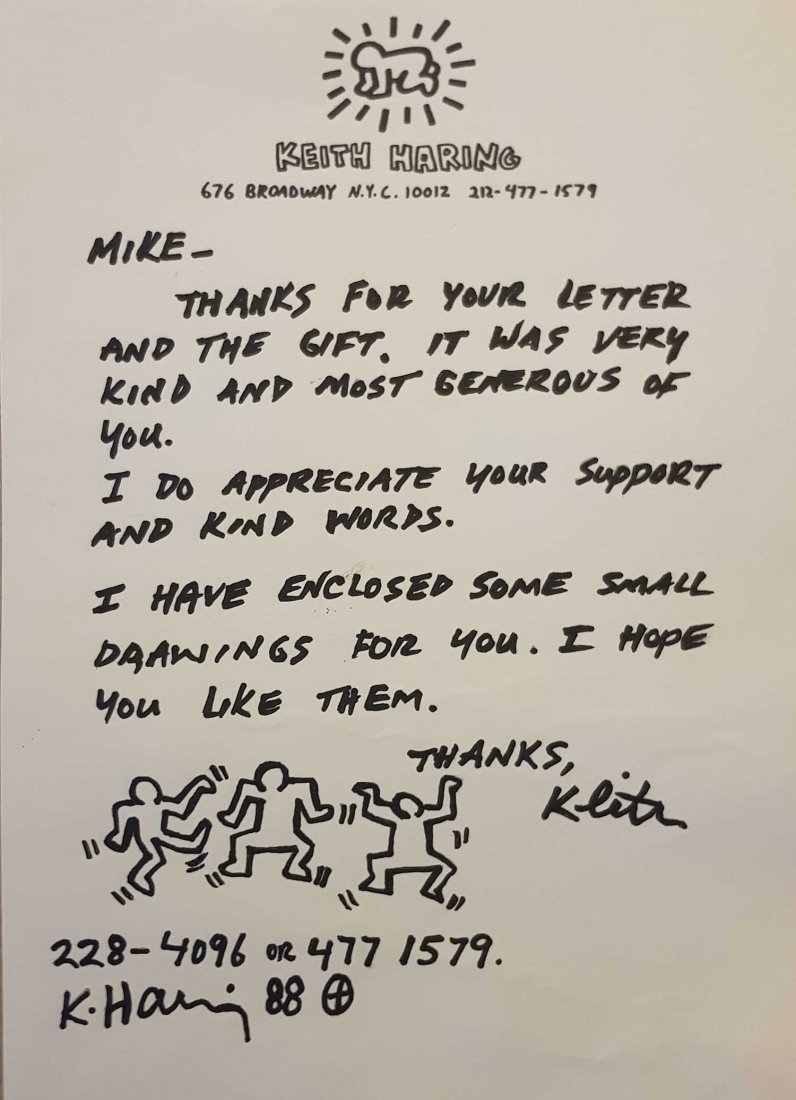 KEITH HARING
676 BROADWAY N.Y.C. 10012 212-477-1579
MIKE—
THANKS FOR YOUR LETTER
AND THE GIFT. IT WAS VERY
KIND AND MOST GENEROUS OF
YOU.
I DO APPRECIATE YOUR SUPPORT
AND KIND WORDS.
I HAVE ENCLOSED SOME SMALL
DRAWINGS FOR YOU. I HOPE
YOU LIKE THEM.
THANKS,
Keith
228-4096 OR 477 1579.
K. Haring 88 ⊕